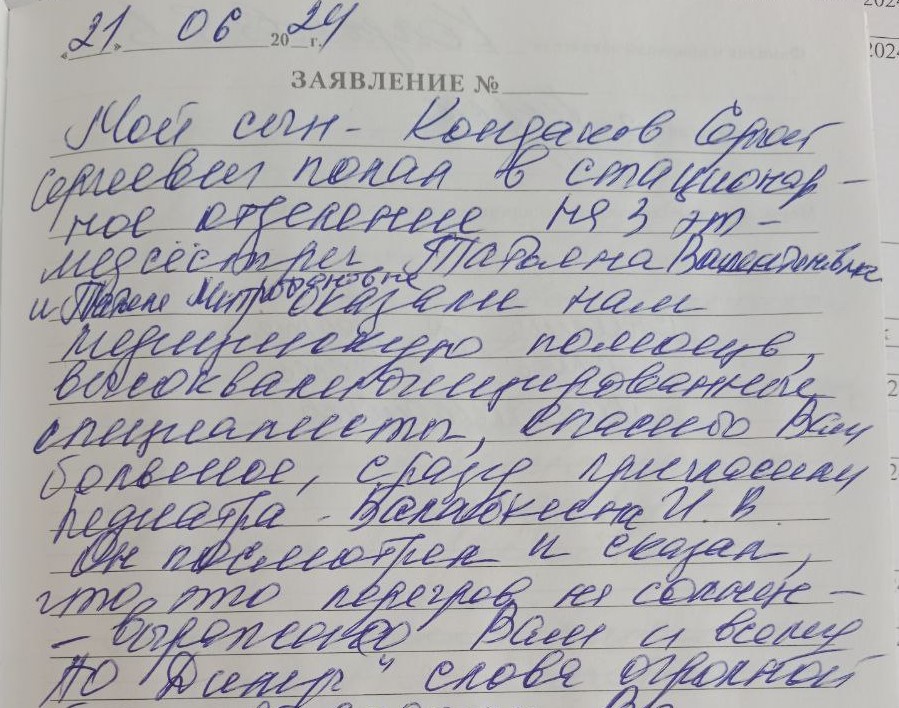 « 21 » 06 20 24 г.
ЗАЯВЛЕНИЕ №
Мой сын - Кондаков Сергей
Сергеевич попал в стационар-
ное отделение на 3 эт -
медсёстры Татьяна Валентиновна
и Татьяна Митрофановна оказали нам
медицинскую помощь,
высококвалифицированные
специалисты, спасибо Вам
большое, сразу пригласили
педиатра - И. В
Он посмотрел и сказал,
что это перегрев на солнце -
- выражаю Вам и всему
"Днепр" слова огромной
2024
2024